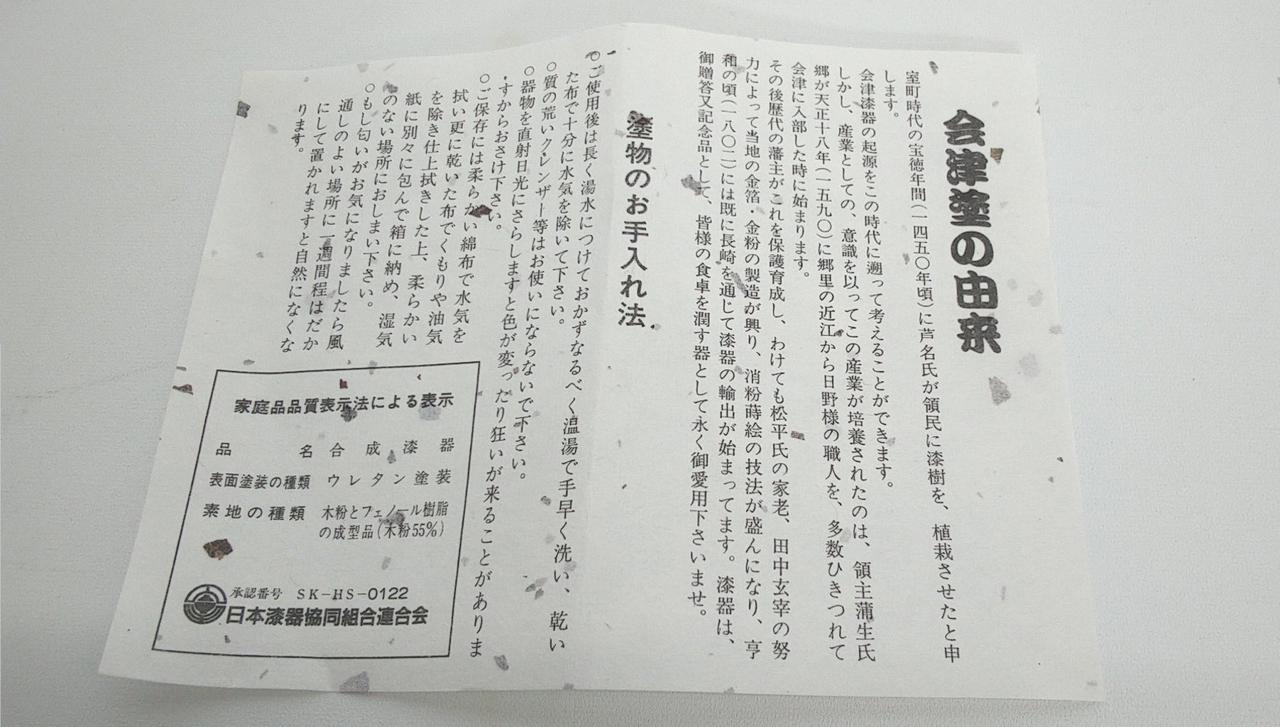 会津塗の由来
室町時代の宝徳年間(一四五〇年頃)に芦名氏が領民に漆樹を、植栽させたと申
します。
会津漆器の起源をこの時代に遡って考えることができます。
しかし、産業としての、意識を以ってこの産業が培養されたのは、領主蒲生氏
郷が天正十八年(一五九〇)に郷里の近江から日野様の職人を、多数ひきつれて
会津に入部した時に始まります。
その後歴代の藩主がこれを保護育成し、わけても松平氏の家老、田中玄宰の努
力によって当地の金箔・金粉の製造が興り、消粉蒔絵の技法が盛んになり、享
和の頃(一八〇二)には既に長崎を通じて漆器の輸出が始まってます。漆器は、
御贈答又記念品として、皆様の食卓を潤す器として永く御愛用下さいませ。
塗物のお手入れ法
○ご使用後は長く湯水につけておかずなるべく温湯で手早く洗い、乾い
た布で十分に水気を除いて下さい。
○質の荒いクレンザー等はお使いにならないで下さい。
○器物を直射日光にさらしますと色が変ったり狂いが来ることがありま
すからおさけ下さい。
○ご保存には柔らかい綿布で水気を
拭い更に乾いた布でくもりや油気
を除き仕上拭きした上、柔らかい
紙に別々に包んで箱に納め、湿気
のない場所におしまい下さい。
○もし匂いがお気になりましたら風
通しのよい場所に一週間程はだか
にして置かれますと自然になくな
ります。
家庭品品質表示法による表示
品名 合成漆器
表面塗装の種類 ウレタン塗装
素地の種類 木粉とフェノール樹脂
の成型品(木粉55%)
承認番号 SK-HS-0122
日本漆器協同組合連合会